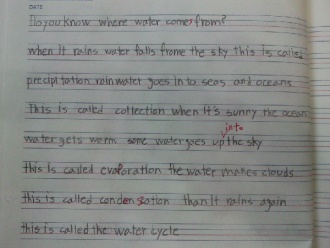 DATE
Do you know where water comes from?
when It rains water falls frome the sky this is called
precipitation rainwater goes in to seas and oceans
This is called collection when It's sunny the ocean
into
water gets worm some water goes up the sky
this Is called evaporation the water makes clouds
this is called condensation than It rains again
this is called the water cycle